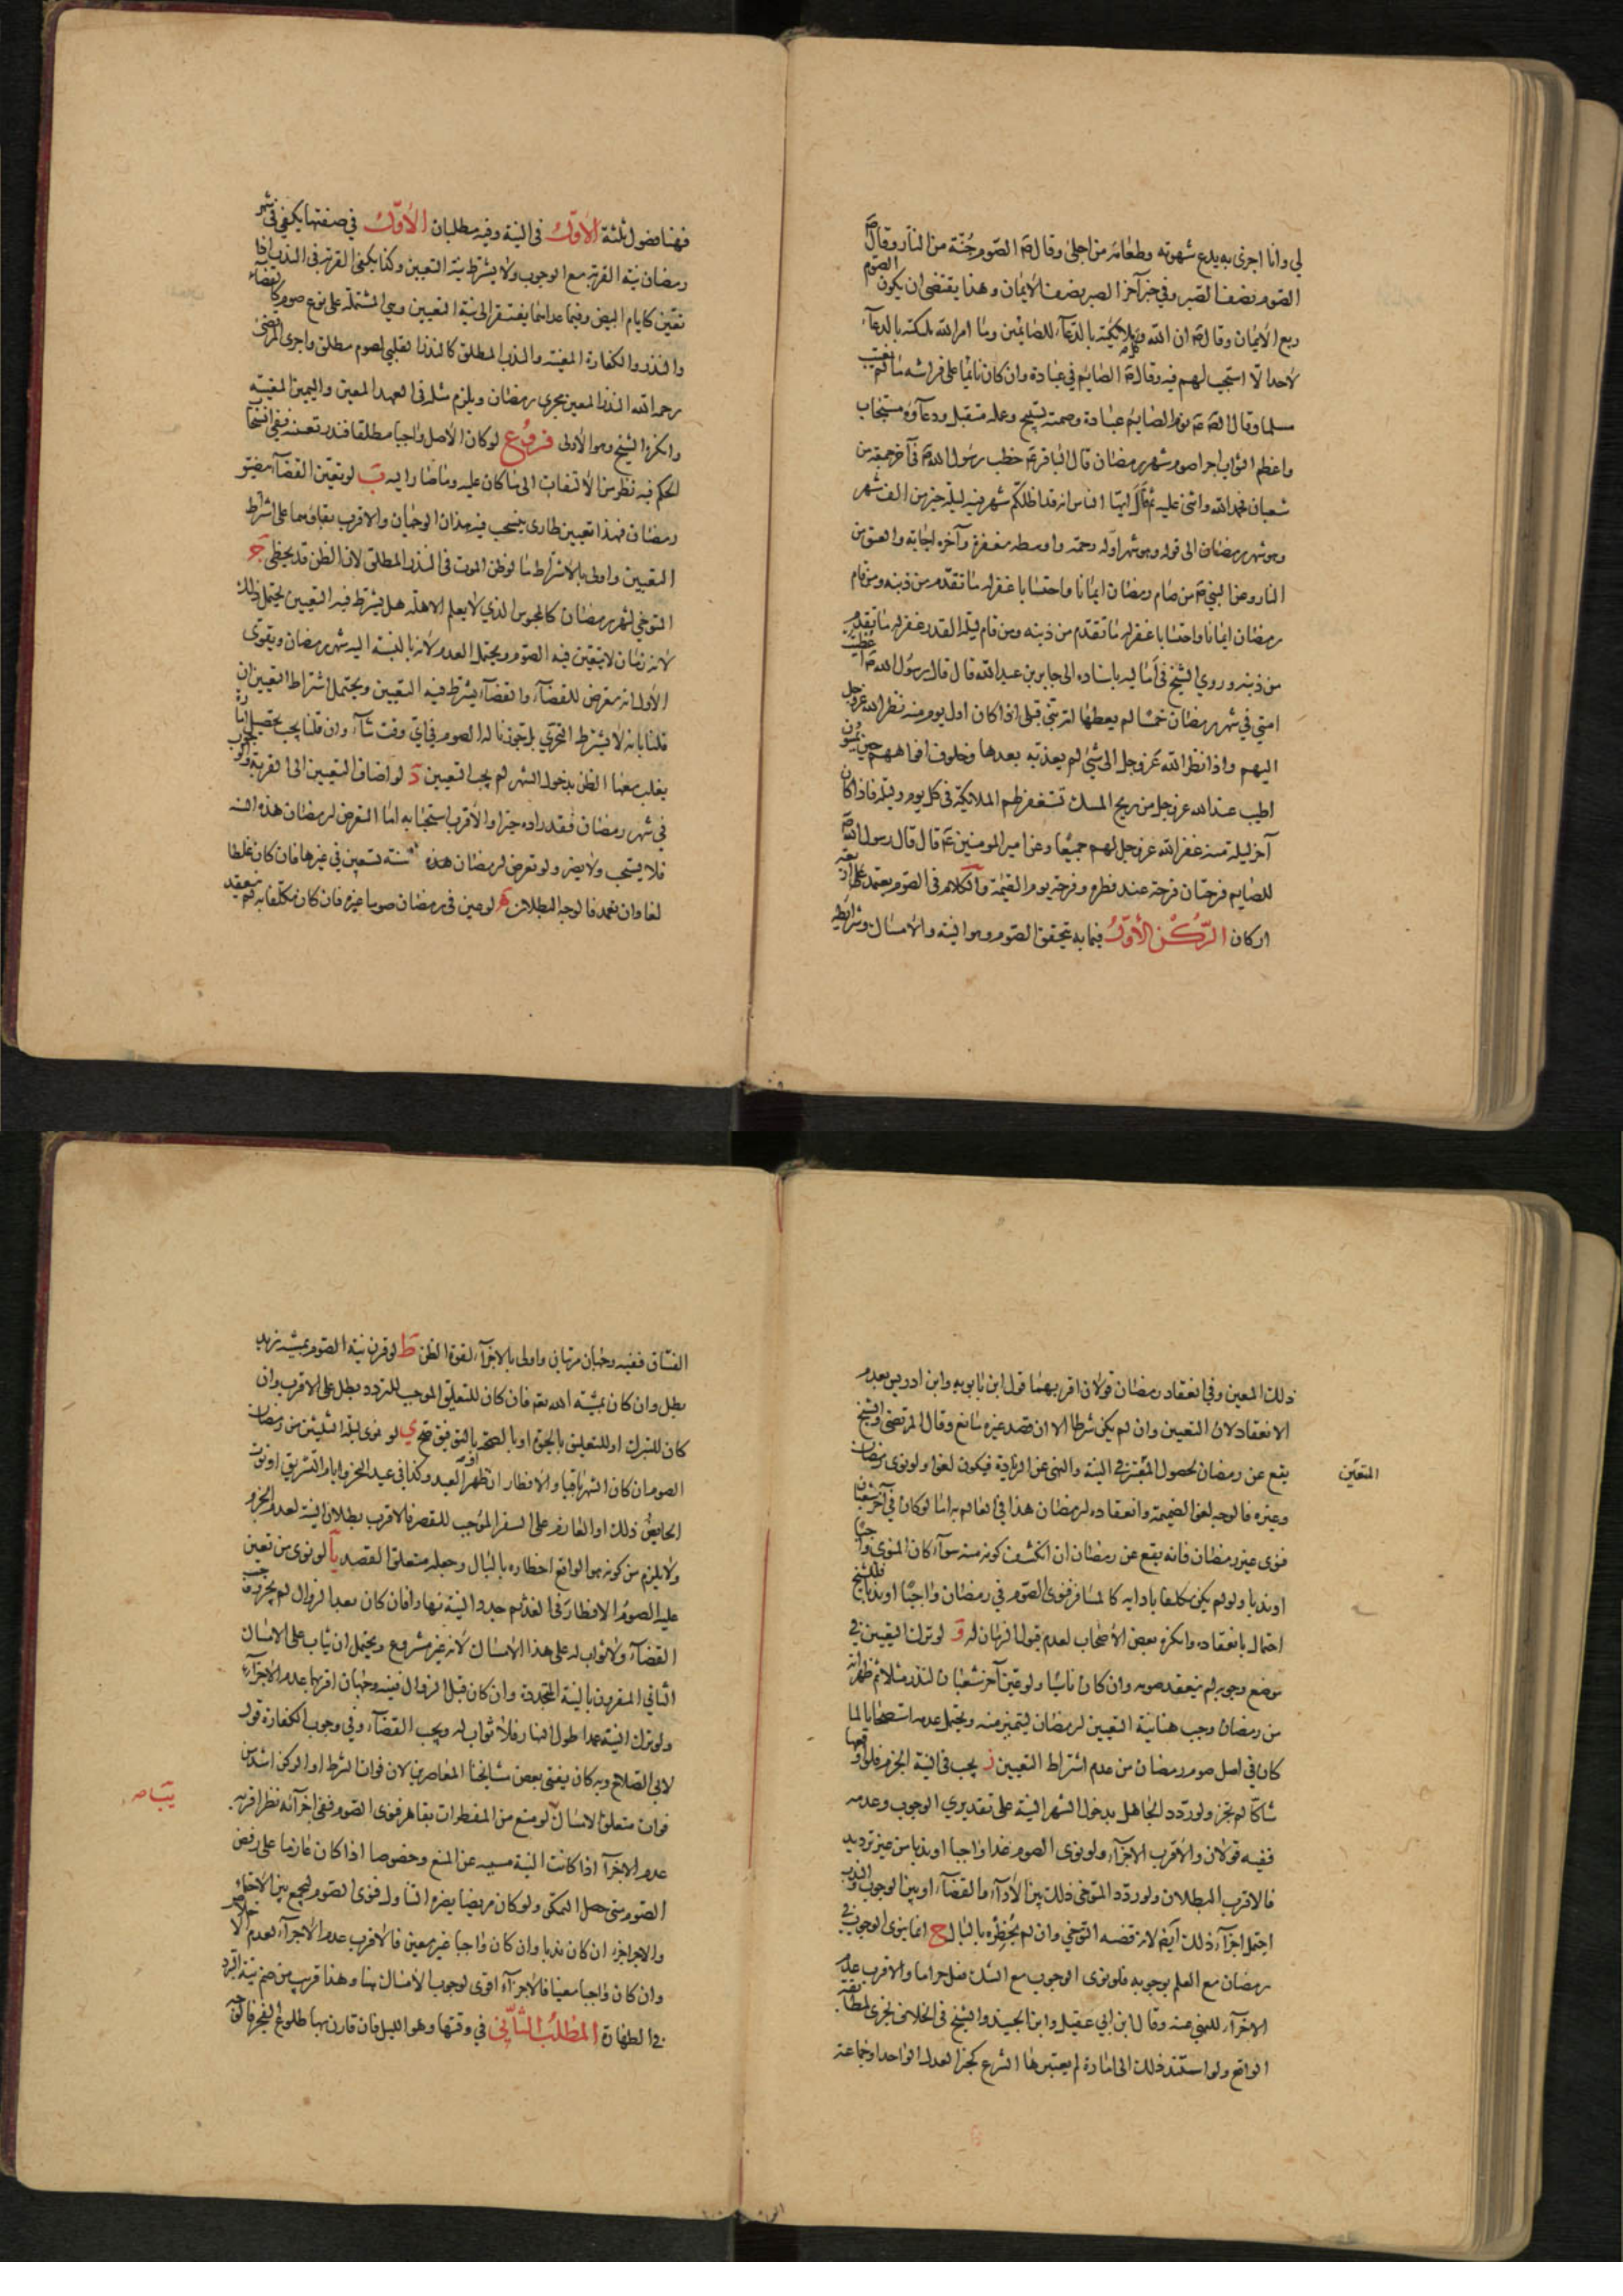 لي وانا اجزى به يدع شهوته وطعامه من اجلى وقال ص الصوم جُنّة من النار وقال ص
الصوم نصف الصبر وفي خبر آخر الصبر نصف الايمان وهذا يقتضى ان يكون الصوم
ربع الايمان وقال ص ان الله وكّل ملائكته بالدعآء للصائمين وما امر الله ملائكته بالدعآء
لاحد الّا استجيب لهم فيه وقال ص الصايم في عبادة وان كان نائما على فراشه ما لم يغتب
مسلما وقال الص ع نوم الصايم عبادة وصمته تسبيح وعمله متقبل ودعاؤه مستجاب
واعظم الثواب اجرا صوم شهر رمضان قال الباقر ع خطب رسول الله ص في آخر جمعة من
شعبان فحمد الله واثنى عليه ثم قال ايها الناس انه قد اظلّكم شهر فيه ليلة خير من الف شهر
وهو شهر رمضان الى قوله وهو شهر اوله رحمة واوسطه مغفرة وآخره اجابة والعتق من
النار وعن النبي ص من صام رمضان ايمانا واحتسابا غفر له ما تقدّم من ذنبه ومن قام
رمضان ايمانا واحتسابا غفر له ما تقدّم من ذنبه ومن قام ليلة القدر غفر له ما تقدم
من ذنبه وروي الشيخ في أماليه باسناده الى جابر بن عبد الله قال قال رسول الله ص اعطيت
امتي في شهر رمضان خمسا لم يعطها امة نبي قبلى اذا كان اول يوم منه نظر الله عز وجل
اليهم واذا نظر الله عز وجل الى شئ لم يعذبه بعدها وخلوف افواههم حين يمسون
اطيب عند الله عز وجل من ريح المسك تستغفر لهم الملائكة في كل يوم وليلة فاذا كان
آخر ليلة منه غفر الله عز وجل لهم جميعا وعن امير المومنين ع قال قال رسول الله ص
للصايم فرحتان فرحة عند فطره وفرحة يوم القيمة والكلام في الصوم يعتمد على اربعة
اركان الرّكن الأوّل فيما به تحقق الصوم وهو النية والامساك وشرايطه
فهنا فصول ثلثة الأوّل في النية وفيه مطلبان الأوّل في صفتها يكفى في شهر
رمضان نية القربة مع الوجوب ولا يشترط نية التعيين وكذا يكفى القربة في النذر اذا
تعيّن كايام البيض وفيما عداهما يفتقر الى نية التعيين وهي المشتملة على نوع صوم كالقضآء
والنذر والكفارة المعينة والنذر المطلق كالنذر لقلبى لصوم مطلق واجرى المرتضى
رحمه الله النذر المعين مجرى رمضان ويلزم مثله في العهد المعين واليمين المعينة
وانكره الشيخ وهو الاولى فروع لو كان الاصل واجبا مطلقا فنذر تعينه ففي انسحاب
الحكم فيه نظر من الالتفات الى ما كان عليه وما صار اليه ب لو تعيّن القضآء بتضيق
رمضان فهذا تعيين طارى ينسحب فيه هذان الوجهان والاقرب بقاؤهما على اشتراط
التعيين واولى بالاشتراط ما لو ظن الموت في النذر المطلق لان الظن قد يخطى ج
المتوخي لشهر رمضان كالمحبوس الذي لا يعلم الاهلة هل يشترط فيه التعيين يحتمل ذلك
لانه زمان لا يتعيّن فيه الصوم ويحتمل العدم لانه بالنسبة اليه شهر رمضان ويقوى
الأول انه معرض للقضآء والقضآء يشترط فيه التعيين ويحتمل اشتراط التعيين ان
قلنا بانه لا يشترط التحرّي بل يجوزنا له الصوم في اي وقت شآء وان قلنا يجب تحصيل امارة
يغلب معها الظن بدخول الشهر لم يجب التعيين د لو اضاف التعيين الى القربة والوجوب
في شهر رمضان فقد زاده خيرا والاقرب استحبابه امّا التعرض لرمضان هذه السنة
فلا يستحب ولا يضر ولو تعرض لرمضان هذه السنة فتبين في غيرها فان كان غلطا
لغا وان تعمد فالوجه البطلان ه لو عين في رمضان صوما غيره فان كان مكلفا به لم ينعقد
ذلك المعين وفي انعقاد رمضان قولان اقربهما قول ابن بابويه وابن ادريس بعدم
الانعقاد لان التعيين وان لم يكن شرطا الا ان قصد غيره مانع وقال المرتضى والشيخ
يقع عن رمضان لحصول المعتبر في النية والنهى عن الزيادة فيكون لغوا ولو نوى رمضان
المتعيّن
وغيره فالوجه لغو الضميمة وانعقاده لرمضان هذا في العالم به امّا لو كان في آخر شعبان
فنوى غير رمضان فانه يقع عن رمضان ان انكشف كونه منه سوآء كان المنوى واجبا
او ندبا ولو لم يكن مكلفا بادايه كالمسافر فنوى الصوم في رمضان واجبا او ندبا فللشيخ
احتمال بانعقاده وانكره بعض الاصحاب لعدم قبول الزمان له و لو ترك التعيين في
موضع وجوبه لم ينعقد صومه وان كان ناسيا ولو عيّن آخر شعبان لنذر مثلا ثم ظهر انه
من رمضان وجب هنا نية التعيين لرمضان ليتميز منه ويحتمل عدمه استصحابا لما
كان في اصل صوم رمضان من عدم اشتراط التعيين ز يجب في النية الجزم فلو اوقعها
شاكّا لم يجز ولو ردّد الجاهل بدخول الشهر النية على تقديري الوجوب وعدمه
ففيه قولان والاقرب الاجزآء ولو نوى الصوم غدا واجبا او ندبا من غير ترديد
فالاقرب البطلان ولو ردّد المتوخي ذلك بين الأدآء والقضآء او بين الوجوب والندب
احتمل اجزآء ذلك ايضا لانه قضية التوخي وان لم يُخطِره بالبال ح انما ينوى الوجوب في
رمضان مع العلم بوجوبه فلو نوى الوجوب مع الشك فعل حراما والاقرب عدم
الاجزآء للنهي عنه وقال ابن ابي عقيل وابن الجنيد والشيخ في الخلاف يجزى لمطابقة
الواقع ولو استند ذلك الى امارة لم يعتبرها الشرع كخبر العدل الواحد او جماعة
الفساق ففيه وجهان مرتبان واولى بالاجزآء لقوة الظن ط لو قرن نية الصوم بمشية زيد
بطل وان كان بمشية الله تعه فان كان للتعليق الموجب للتردد بطل على الاقرب وان
كان للتبرك او للتعليق بالجوّ او بالصحة بالتوفيق صح ي لو نوى ليلة الثلثين من رمضان
الصوم ان كان الشهر باقيا والافطار ان ظهر العيد وكذا في عيد النحر وايام التشريق او نوت
الحايض ذلك او العازم على السفر الموجب للقصر فالاقرب بطلان النية لعدم الجزم
ولا يلزم من كونه هو الواقع اخطاره بالبال وجعله متعلق القصد يآ لو نوى من تعين
عليه الصوم الافطار في الغد ثم جدد النية نهارا فان كان بعد الزوال لم يجز ووجب
القضآء ولا ثواب له على هذا الامساك لانه غير مشروع ويحتمل ان يثاب على الامساك
الثاني المقرون بالنية المتجددة وان كان قبل الزوال ففيه وجهان اقربها عدم الاجزآء
ولو ترك النية عمدا طول النهار فلا ثواب له ويجب القضآء وفي وجوب الكفارة قول
لابي الصلاح وبه كان يفتى بعض مشايخنا المعاصرين لان فوات الشرط او الركن اشد من
يب
فوات متعلق الامساك لو منع من المفطرات بقاهر فنوى الصوم ففي اجزآئه نظر اقربه
عدم الاجزآء اذا كانت النية مسببة عن المنع وخصوصا اذا كان عازما على رفض
الصوم متى حصل التمكن ولو كان مريضا يضره التناول فنوى الصوم ليجمع بين الاحتماء
والاجر اجزء ان كان ندبا وان كان واجبا غير معين فالاقرب عدم الاجزآء لعدم الاخلاص
وان كان واجبا معينا فالاجزآء اقوى لوجوب الامساك هنا وهذا قريب من ضم نية التبرد
في الطهارة المطلب الثاني في وقتها وهو الليل فان قارن بها طلوع الفجر فالوجه